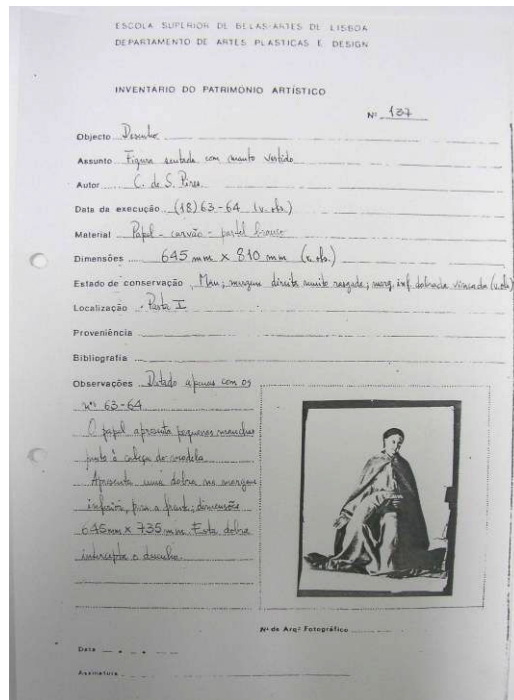 ESCOLA SUPERIOR DE BELAS-ARTES DE LISBOA
DEPARTAMENTO DE ARTES PLASTICAS E DESIGN
INVENTARIO DO PATRIMONIO ARTÍSTICO
Nº 137
Objecto Desenho
Assunto Figura sentada com manto vestido
Autor C. de S. Pires
Data da execução (18)63-64 (v. obs.)
Material Papel - carvão - pastel branco
Dimensões 645 mm x 810 mm (v. obs.)
Estado de conservação Mau; margem direita muito rasgada; marg. inf. dobrada vincada (v. obs)
Localização Pasta I
Proveniência
Bibliografia
Observações Datado apenas com os
nºs 63-64
O papel apresenta pequenas manchas
junto à cabeça do modelo
Apresenta uma dobra na margem
inferior, para a frente; dimensões
645 mm x 735 mm. Esta dobra
intercepta o desenho.
Nº de Arqº Fotográfico
Data
Assinatura